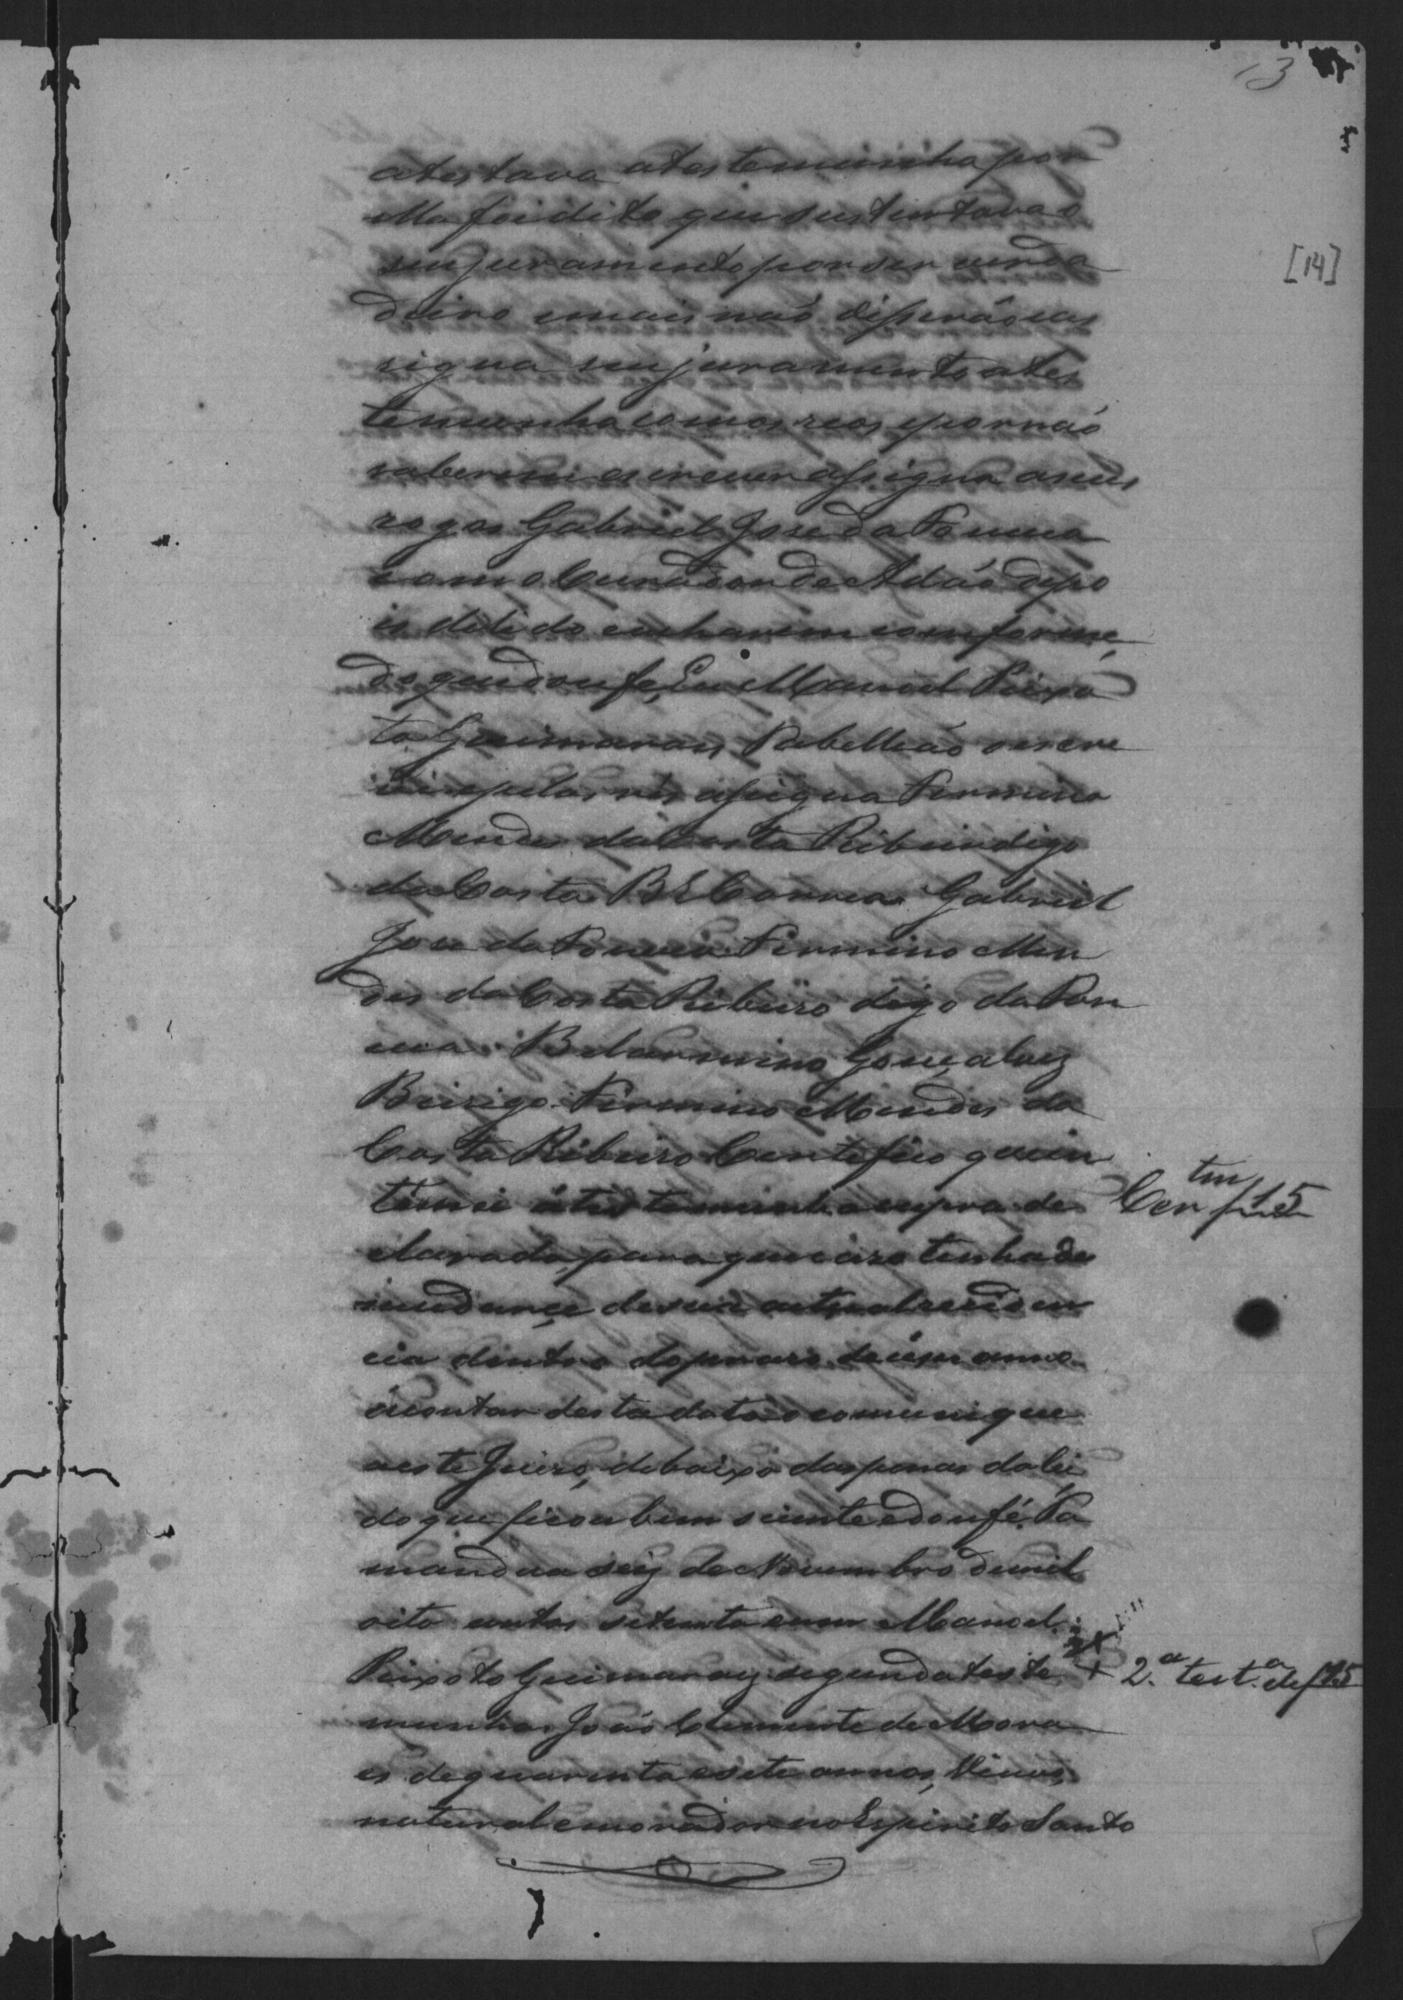 13
[14]
atestava atesteminha por
ella foi dito que sustentava o
seu juramento por ser verda
deiro e mais não disserão e as
signa seu juramento a tes
temunha com os reos e por não
saberem escrever assigna a seus
rogos Gabriel Jose da
como Curador de Adão depo
is de lido e acharem comforme,
do que dou fe, Eu Manoel Peixo
to Guimaraes Tabelleão o escre
vi e pelas res assigna Firmino
Mendes da Costa Ribeiro digo
da Costa B E Correa Gabriel
Jose da Firmino Men
des da Costa Ribeiro digo da
Belarmino Gonçalvez
Firmino Mendes da
Costa Ribeiro Certefico que in
temei á testemunha supra de
clarada, para que caso tenha de
mudança de sua actual reciden
cia dentro do praso de um anno
á contar desta data o comunique
a este Juizo, debaixo das penas da lei
do que ficou bem sciente e dou fé. Ta
mandua seis de Novembro de mil
oito centos setenta e um Manoel
Peixoto Guimaraes segunda teste
munha João Clemente de Mora
es de quarenta e sete annos,
natural e morador no Espirito Santo
Cer tm f 15
2.ª test.ª de f 15